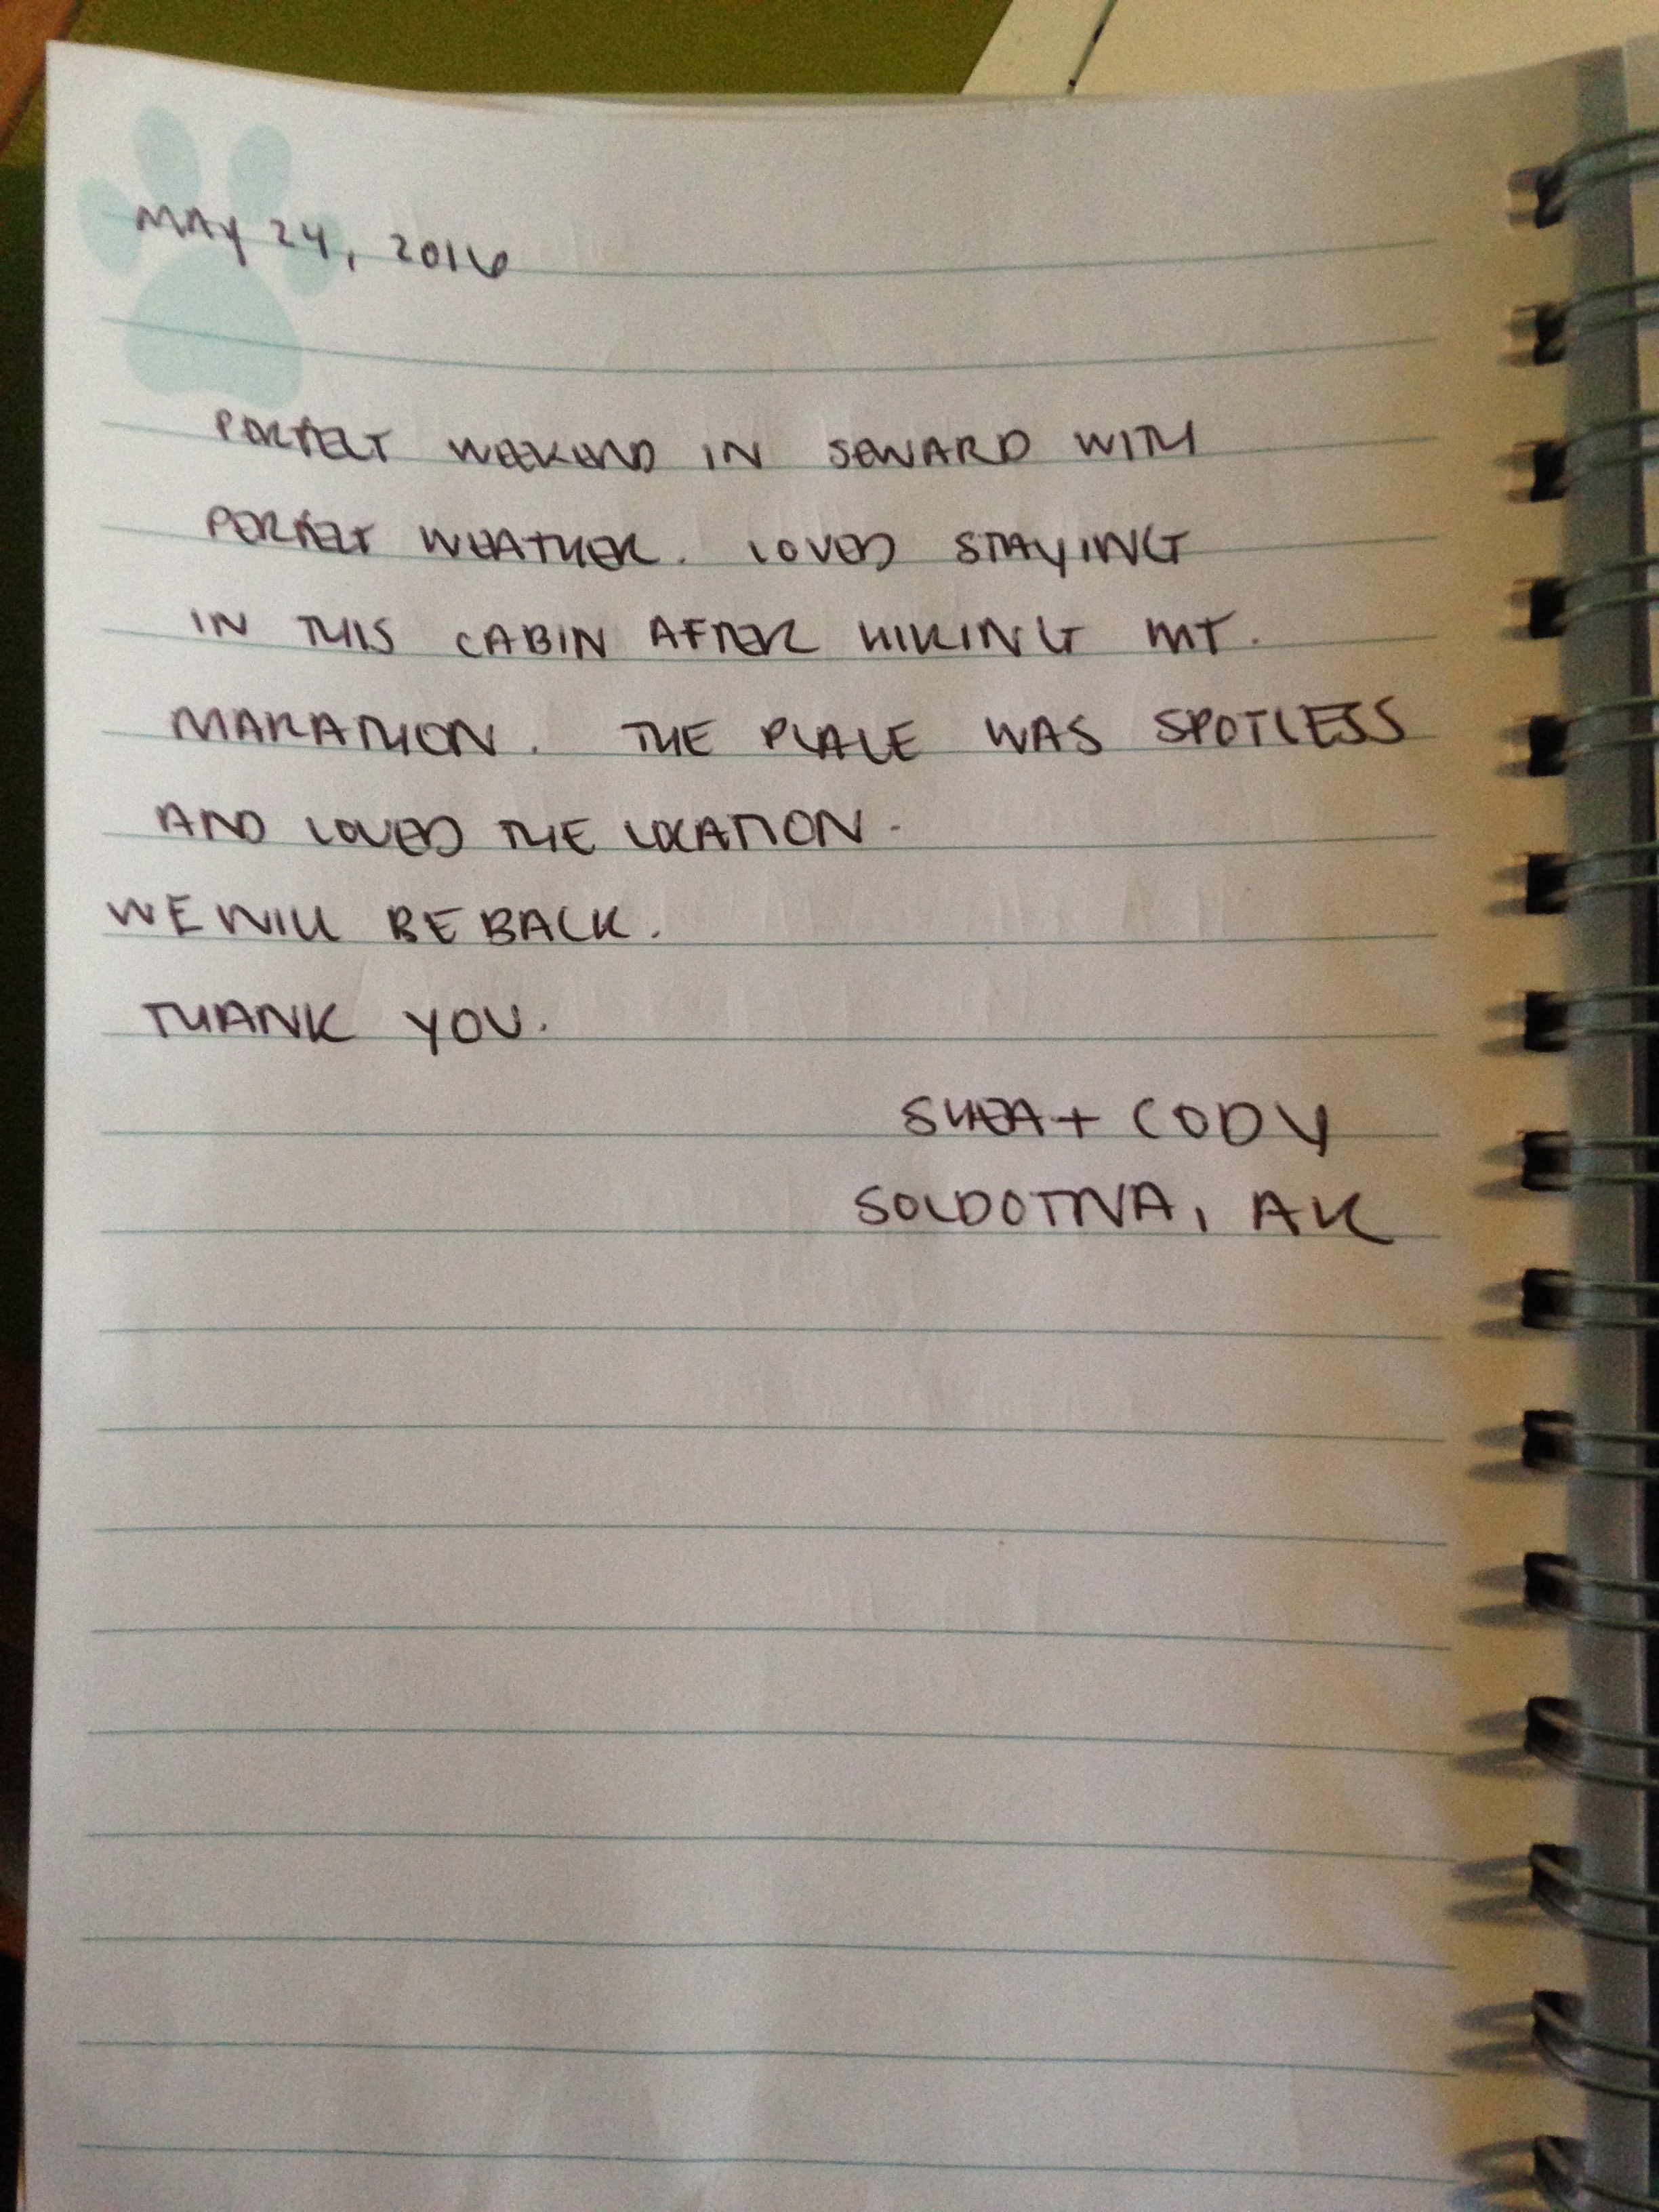 MAY 24, 2016
PERFECT WEEKEND IN SEWARD WITH
PERFECT WEATHER. LOVED STAYING
IN THIS CABIN AFTER HIKING MT.
MARATHON. THE PLACE WAS SPOTLESS
AND LOVED THE LOCATION.
WE WILL BE BACK.
THANK YOU.
SHEA + CODY
SOLDOTNA, AK